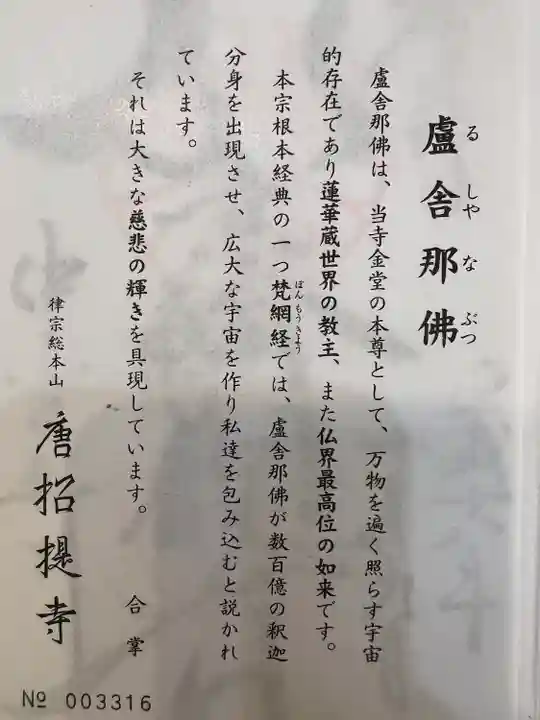 盧舎那佛
るしやなぶつ
盧舎那佛は、当寺金堂の本尊として、万物を遍く照らす宇宙
的存在であり蓮華蔵世界の教主、また仏界最高位の如来です。
本宗根本経典の一つ梵網経では、盧舎那佛が数百億の釈迦
ぼんもうきょう
分身を出現させ、広大な宇宙を作り私達を包み込むと説かれ
ています。
それは大きな慈悲の輝きを具現しています。
合掌
律宗総本山
唐招提寺
№ 003316